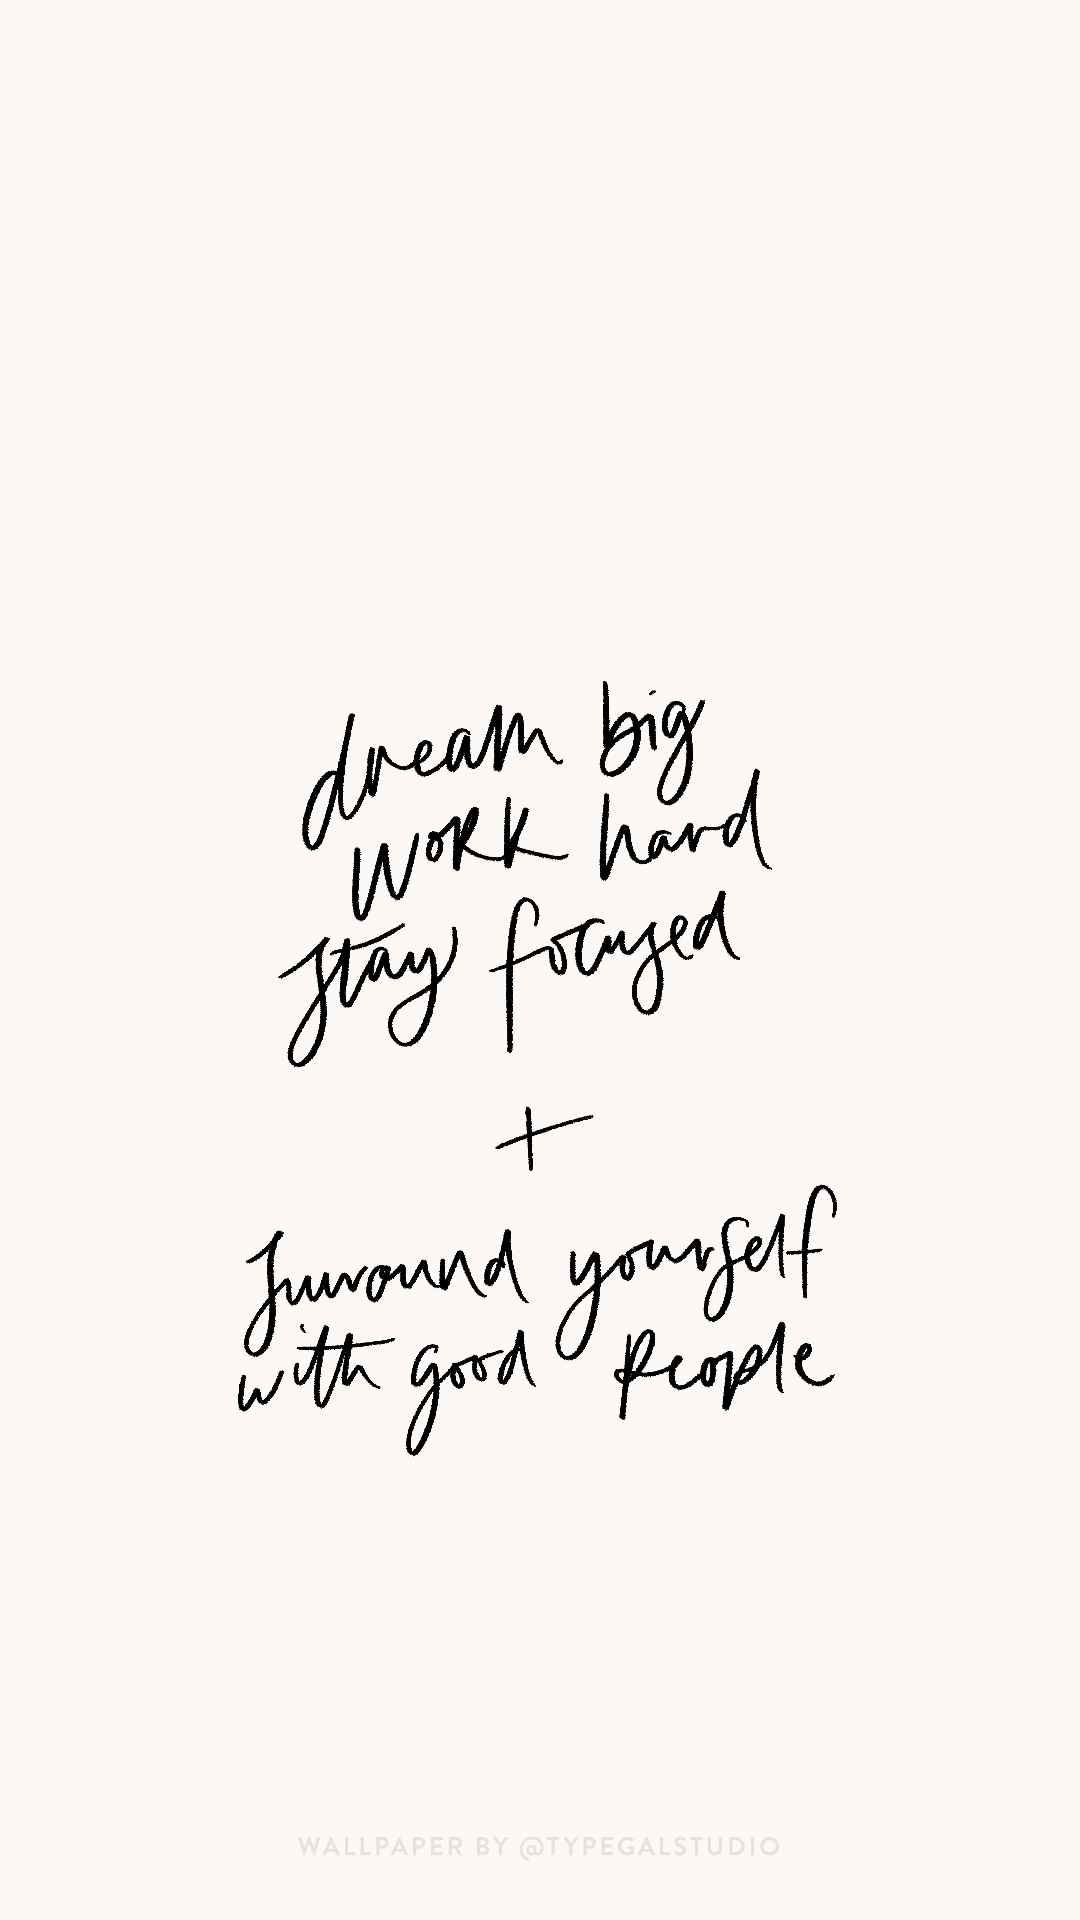 dream big
work hard
stay focused
+
surround yourself
with good people
WALLPAPER BY @TYPEGALSTUDIO